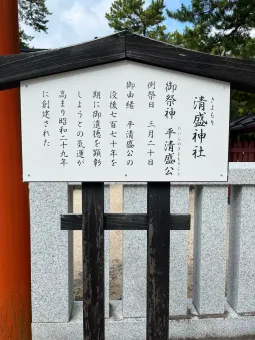 きよもり
清盛神社
御祭神 平清盛公
たいらのきよもりこう
例祭日 三月二十日
御由緒 平清盛公の
没後七百七十年を
期に御遺徳を顕彰
しようとの気運が
高まり昭和二十九年
に創建された